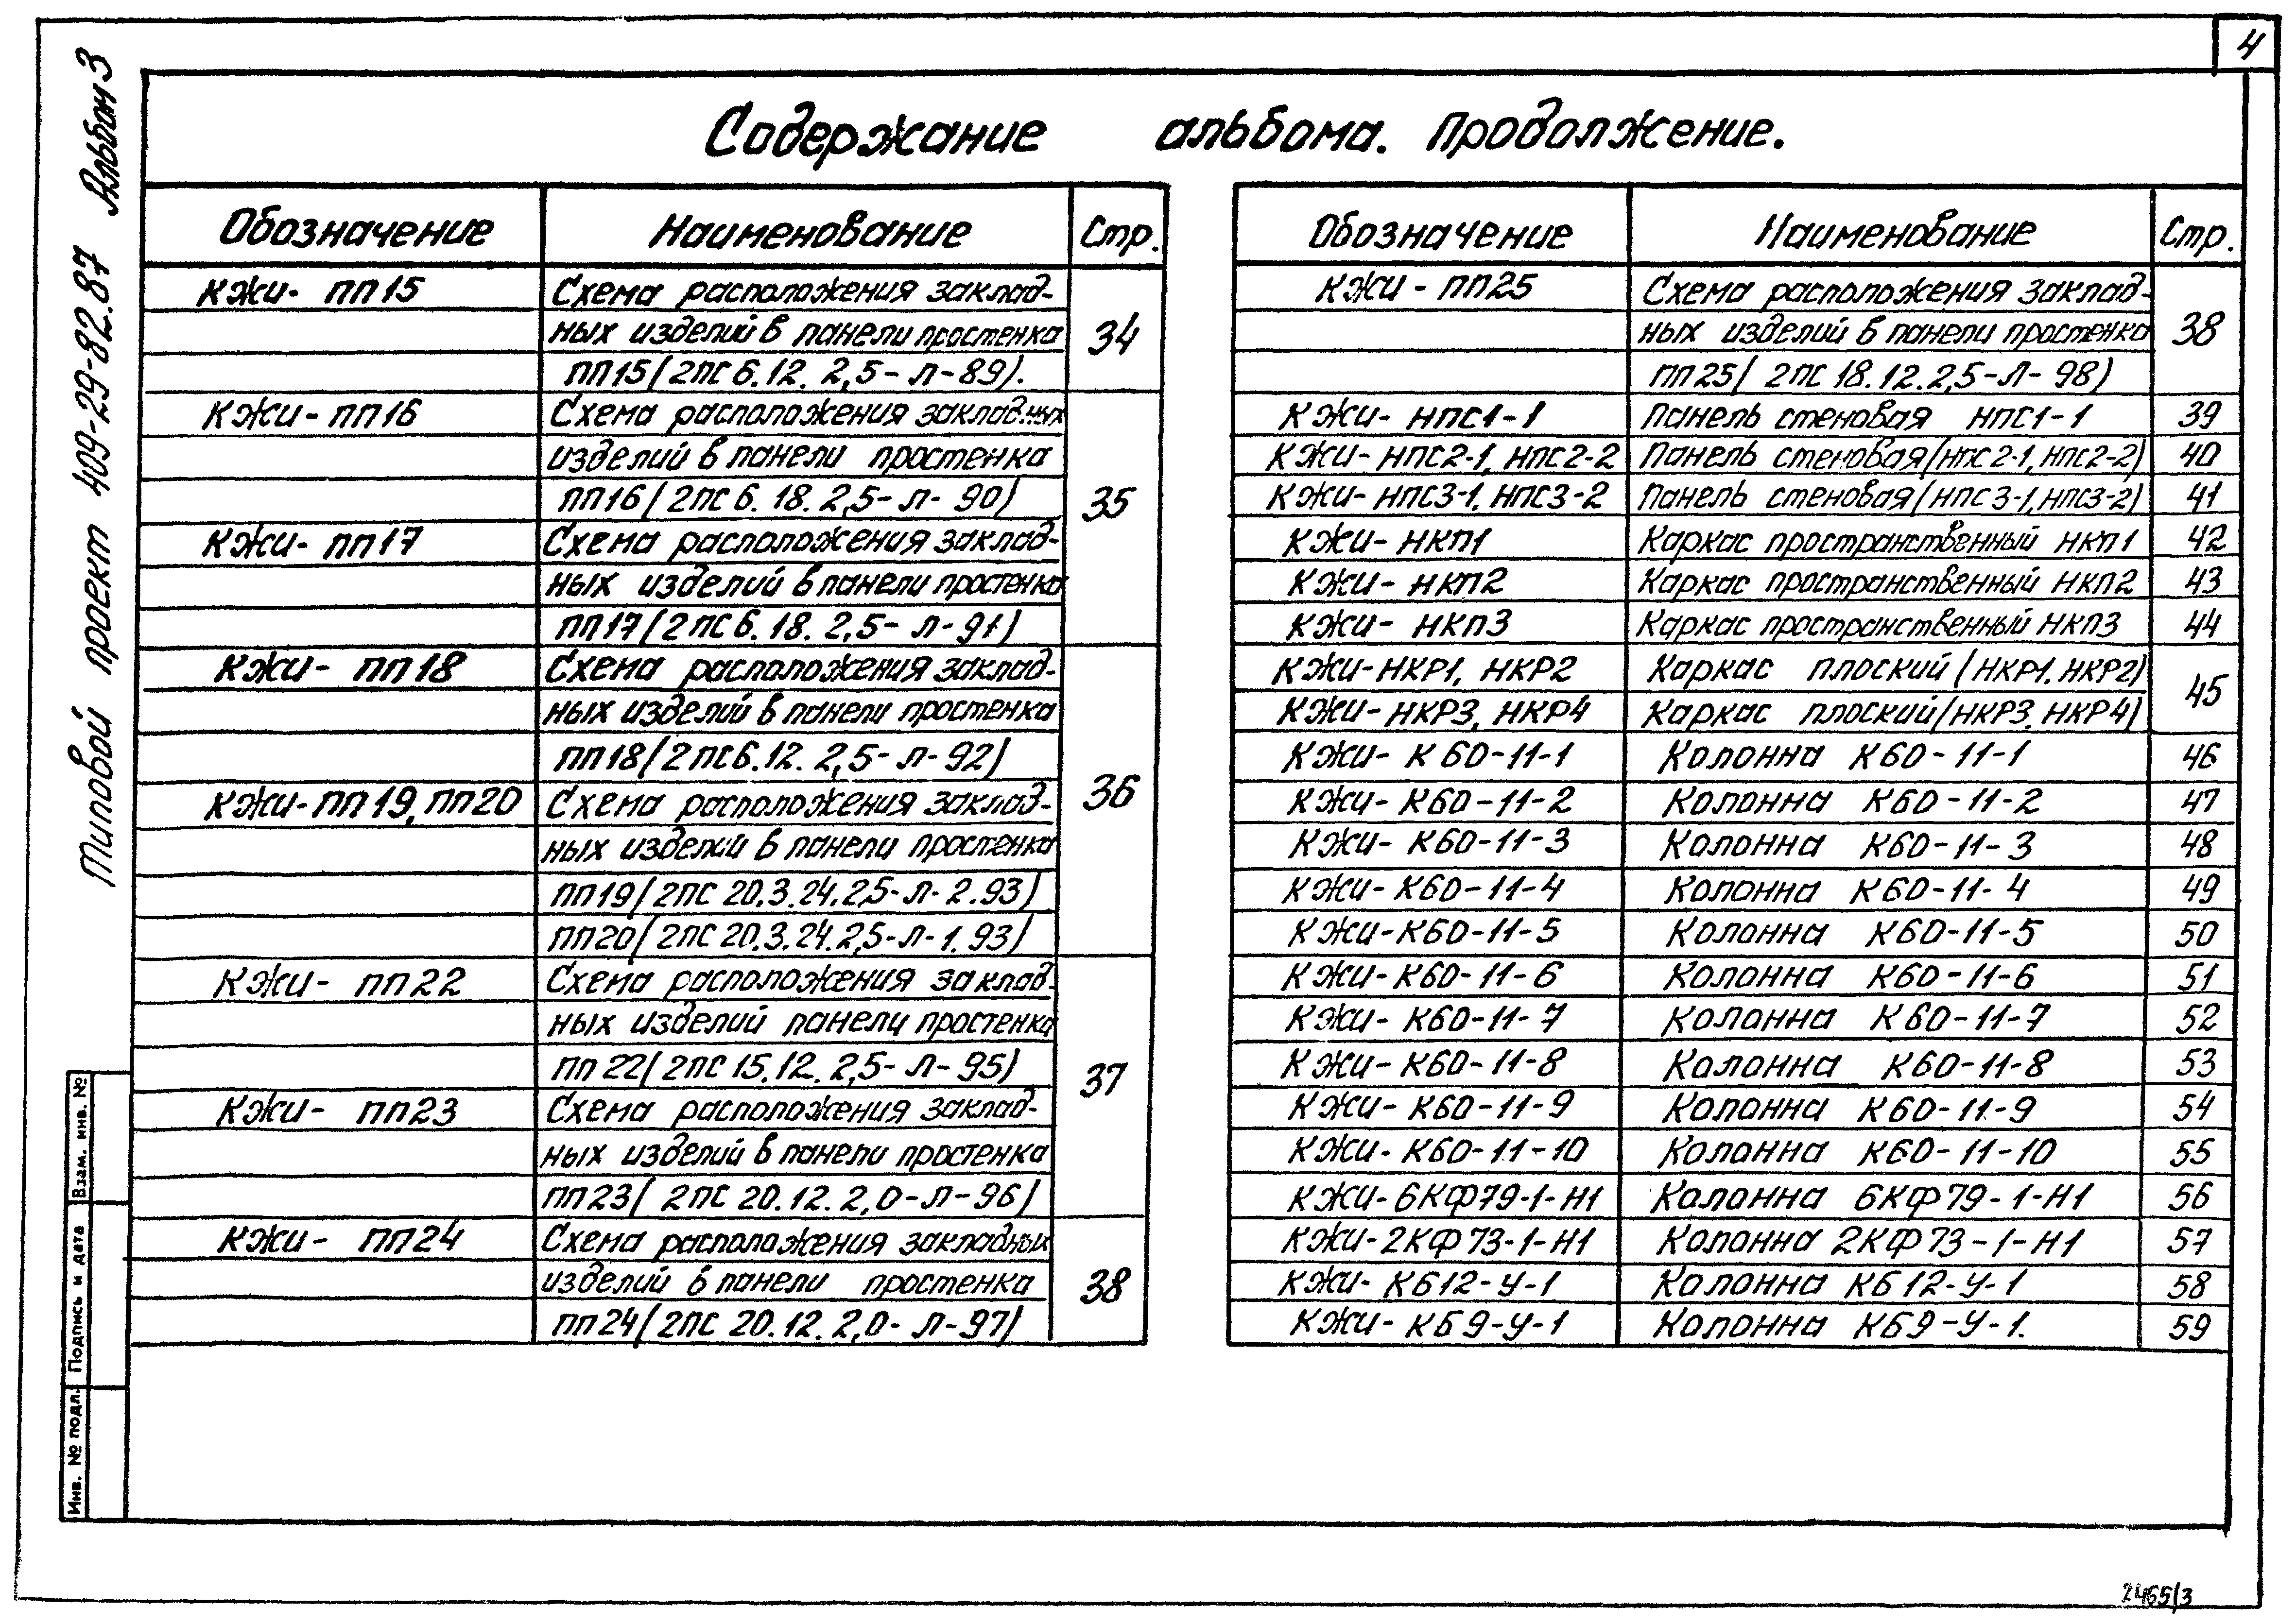 4
Типовой проект 409-29-82.87 Альбом 3
Содержание альбома. Продолжение.
Обозначение Наименование Стр.
КЖИ- ПП15 Схема расположения заклад-
ных изделий в панели простенка 34
ПП15(2ПС 6.12. 2,5- Л-89).
КЖИ- ПП16 Схема расположения закладных
изделий в панели простенка
ПП16(2ПС 6. 18. 2,5- Л- 90) 35
КЖИ- ПП17 Схема расположения заклад-
ных изделий в панели простенка
ПП17(2ПС 6. 18. 2,5- Л-91)
КЖИ- ПП18 Схема расположения заклад-
ных изделий в панели простенка
ПП18(2ПС6.12. 2,5- Л-92)
КЖИ-ПП19, ПП20 Схема расположения заклад- 36
ных изделий в панели простенка
ПП19(2ПС 20.3.24.2,5-Л-2.93)
ПП20(2ПС 20.3.24.2,5-Л-1.93)
КЖИ- ПП22 Схема расположения заклад-
ных изделий панели простенка
ПП 22(2ПС 15.12. 2,5- Л-95) 37
КЖИ- ПП23 Схема расположения заклад-
ных изделий в панели простенка
ПП23( 2ПС 20.12. 2,0-Л-96)
КЖИ- ПП24 Схема расположения закладных
изделий в панели простенка 38
ПП24(2ПС 20.12. 2,0- Л-97)
Обозначение Наименование Стр.
КЖИ - ПП25 Схема расположения заклад-
ных изделий в панели простенка 38
ПП25( 2ПС 18.12.2,5-Л- 98)
КЖИ- НПС1-1 Панель стеновая НПС1-1 39
КЖИ-НПС2-1, НПС2-2 Панель стеновая(НПС2-1, НПС2-2) 40
КЖИ-НПС3-1, НПС3-2 Панель стеновая(НПС3-1, НПС3-2) 41
КЖИ- НКП1 Каркас пространственный НКП1 42
КЖИ- НКП2 Каркас пространственный НКП2 43
КЖИ- НКП3 Каркас пространственный НКП3 44
КЖИ-НКР1, НКР2 Каркас плоский(НКР1, НКР2) 45
КЖИ-НКР3, НКР4 Каркас плоский(НКР3, НКР4)
КЖИ- К 60-11-1 Колонна К60-11-1 46
КЖИ- К60-11-2 Колонна К60-11-2 47
КЖИ- К60-11-3 Колонна К60-11-3 48
КЖИ- К60-11-4 Колонна К60-11-4 49
КЖИ-К60-11-5 Колонна К60-11-5 50
КЖИ-К60-11-6 Колонна К60-11-6 51
КЖИ- К60-11-7 Колонна К60-11-7 52
КЖИ- К60-11-8 Колонна К60-11-8 53
КЖИ- К60-11-9 Колонна К60-11-9 54
КЖИ- К60-11-10 Колонна К60-11-10 55
КЖИ-6КФ79-1-Н1 Колонна 6КФ79-1-Н1 56
КЖИ-2КФ73-1-Н1 Колонна 2КФ73-1-Н1 57
КЖИ- КБ12-У-1 Колонна КБ12-У-1 58
КЖИ- КБ9-У-1 Колонна КБ9-У-1. 59
Взам. инв. №
Подпись и дата
Инв. № подл.
2465/3